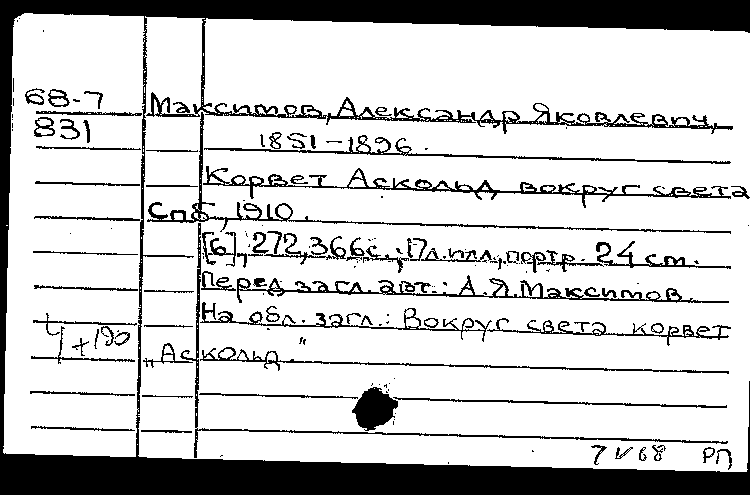 68-7 Максимов, Александр Яковлевич,
831 1851-1896.
Корвет Аскольд вокруг света
Спб, 1910.
[6], 272, 366с., 17л.илл., портр. 24 см.
Перед загл. авт.: А.Я. Максимов.
На обл. загл.: Вокруг света корвет
„Аскольд."
7 V 68 РП